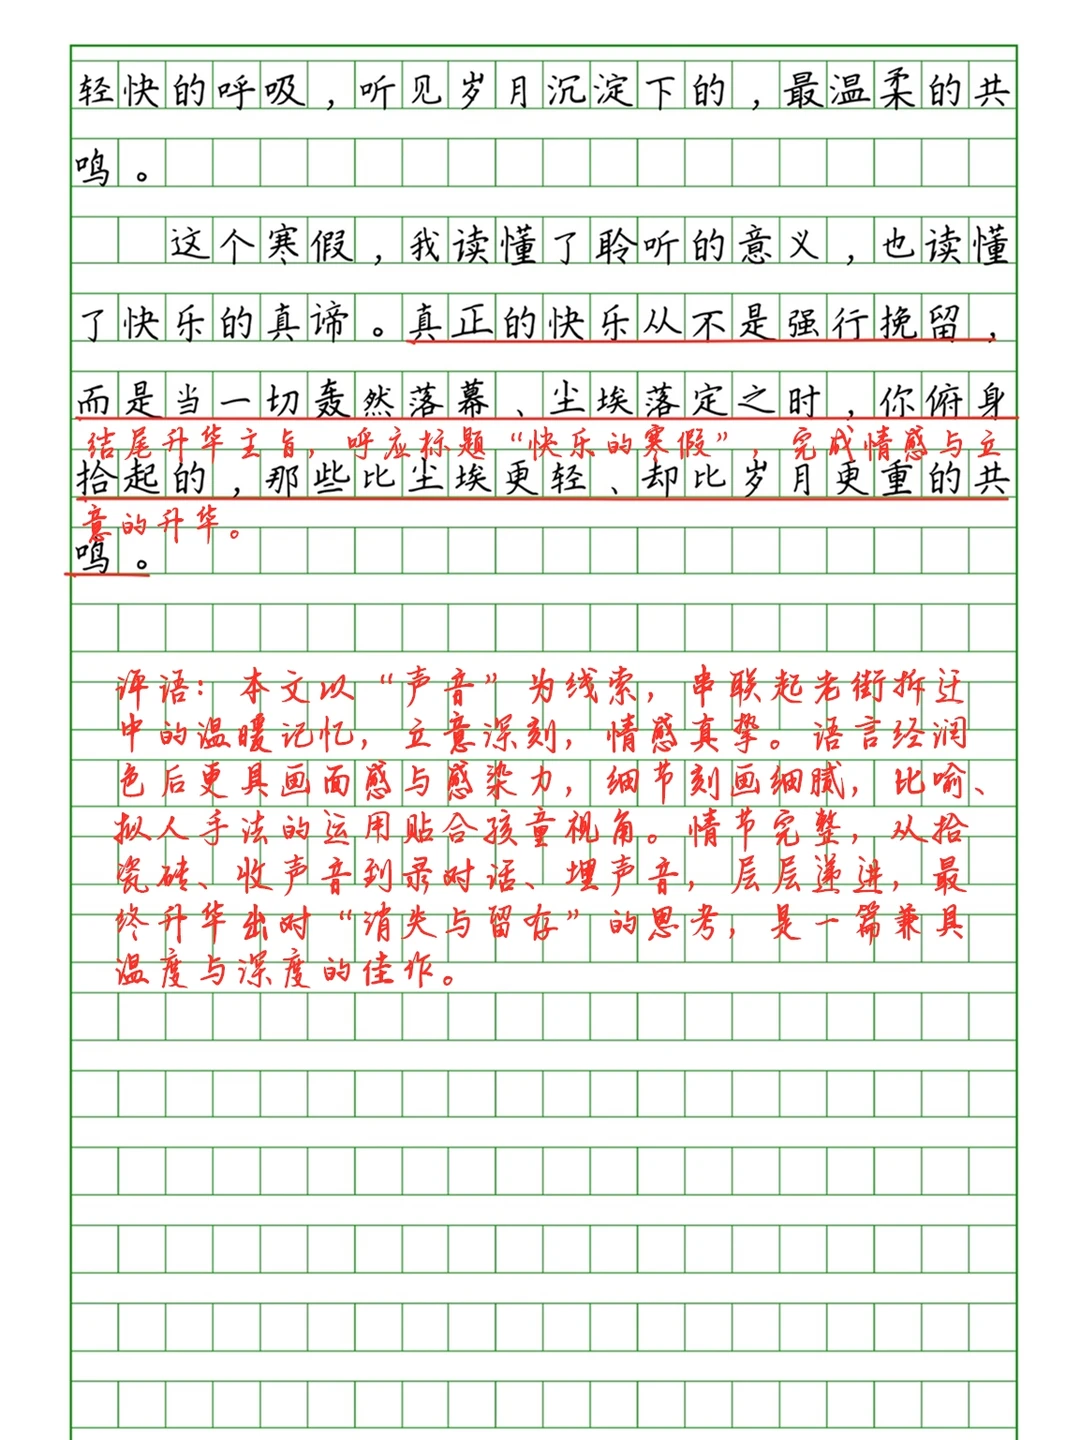 轻快的呼吸，听见岁月沉淀下的，最温柔的共
鸣。
这个寒假，我读懂了聆听的意义，也读懂
了快乐的真谛。真正的快乐从不是强行挽留，
而是当一切轰然落幕、尘埃落定之时，你俯身
结尾升华主旨，呼应标题“快乐的寒假”，完成情感与立
拾起的，那些比尘埃更轻、却比岁月更重的共
意的升华。
鸣。
评语：本文以“声音”为线索，串联起老街拆迁
中的温暖记忆，立意深刻，情感真挚。语言经润
色后更具画面感与感染力，细节刻画细腻，比喻、
拟人手法的运用贴合孩童视角。情节完整，从拾
瓷砖、收声音到录对话、埋声音，层层递进，最
终升华出对“消失与留存”的思考，是一篇兼具
温度与深度的佳作。